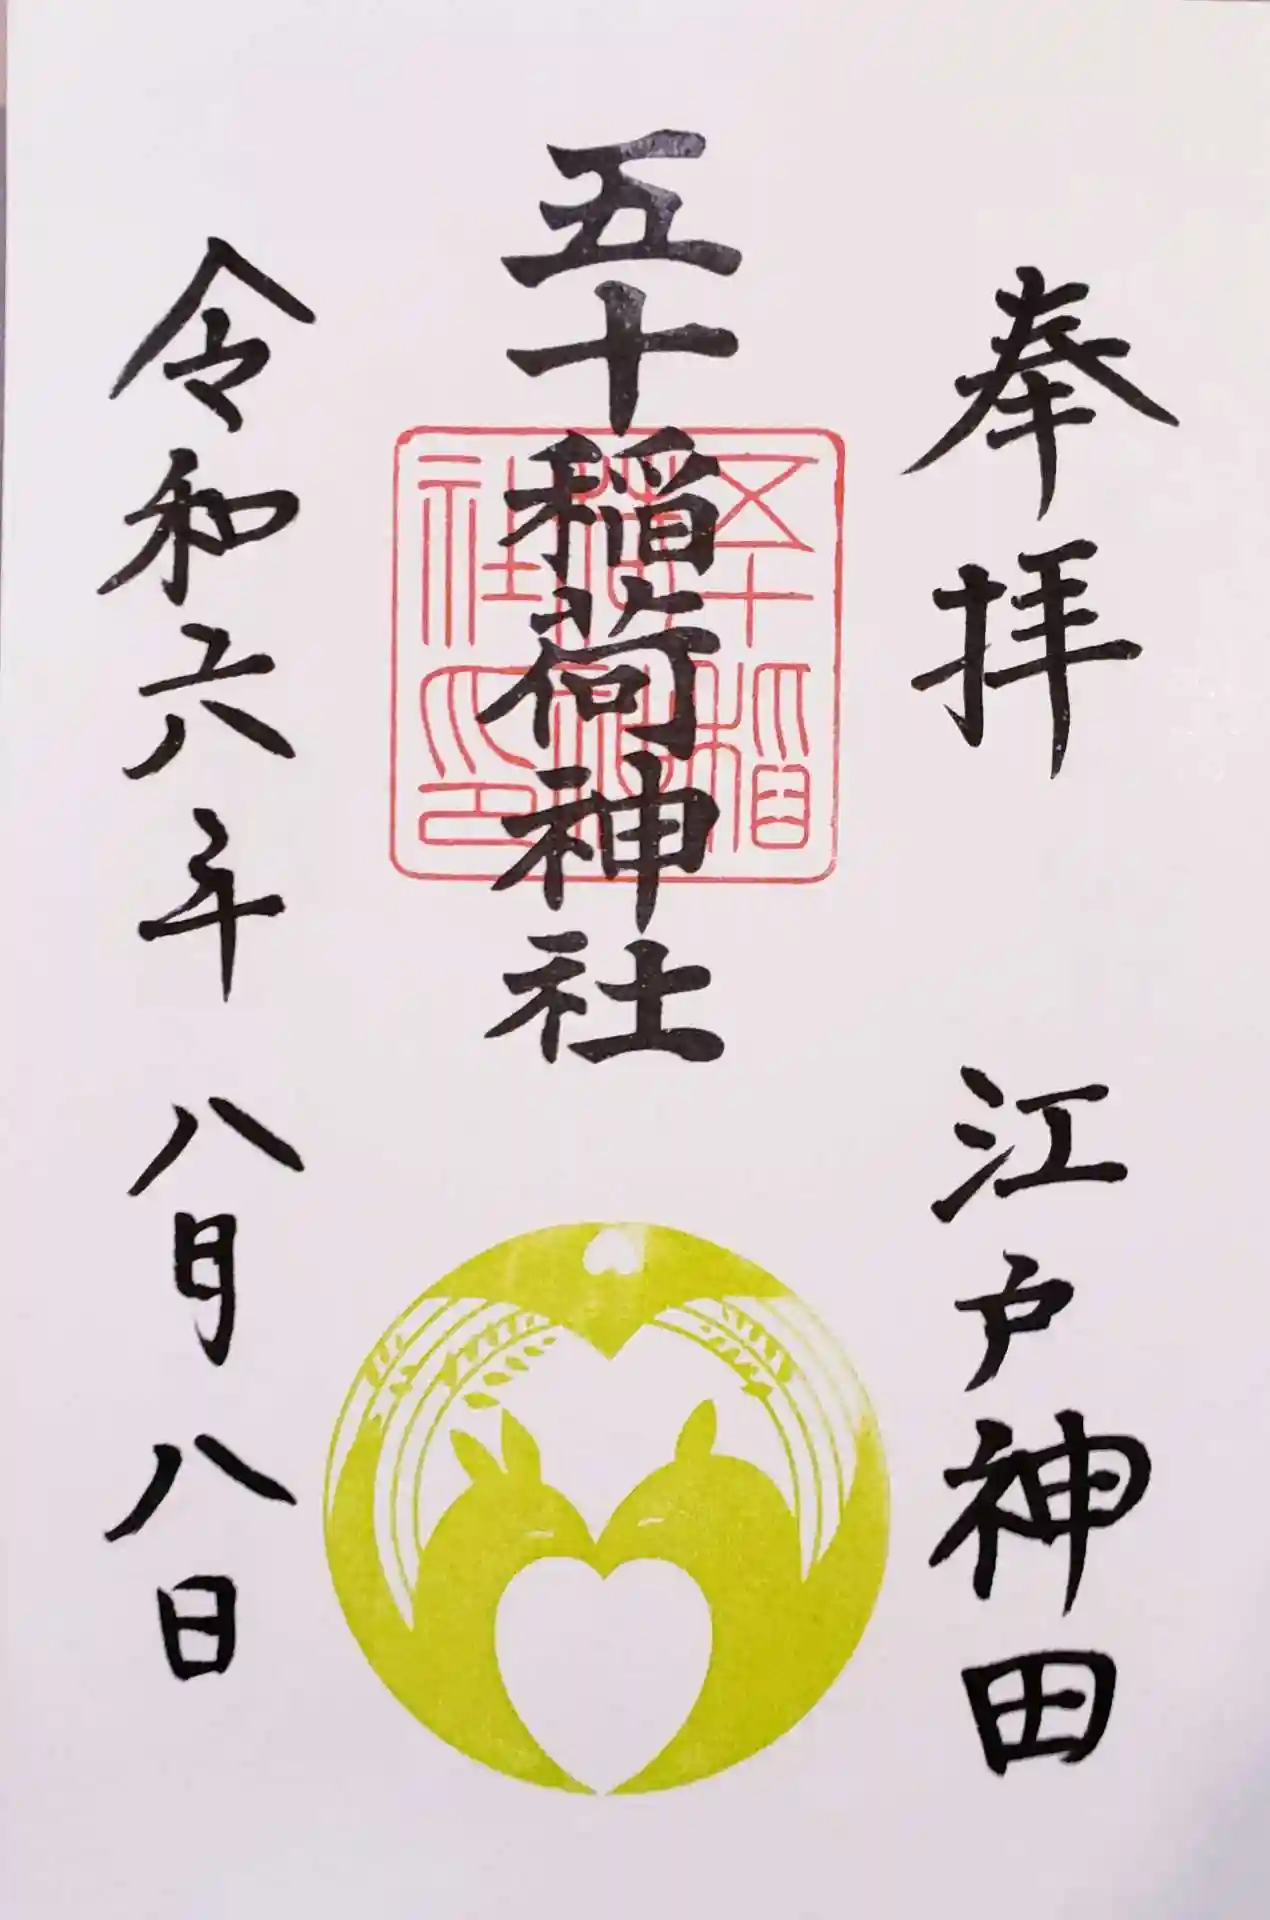 奉拝 江戸神田
五十稲荷神社
五十稲荷神社印
令和六年 八月八日